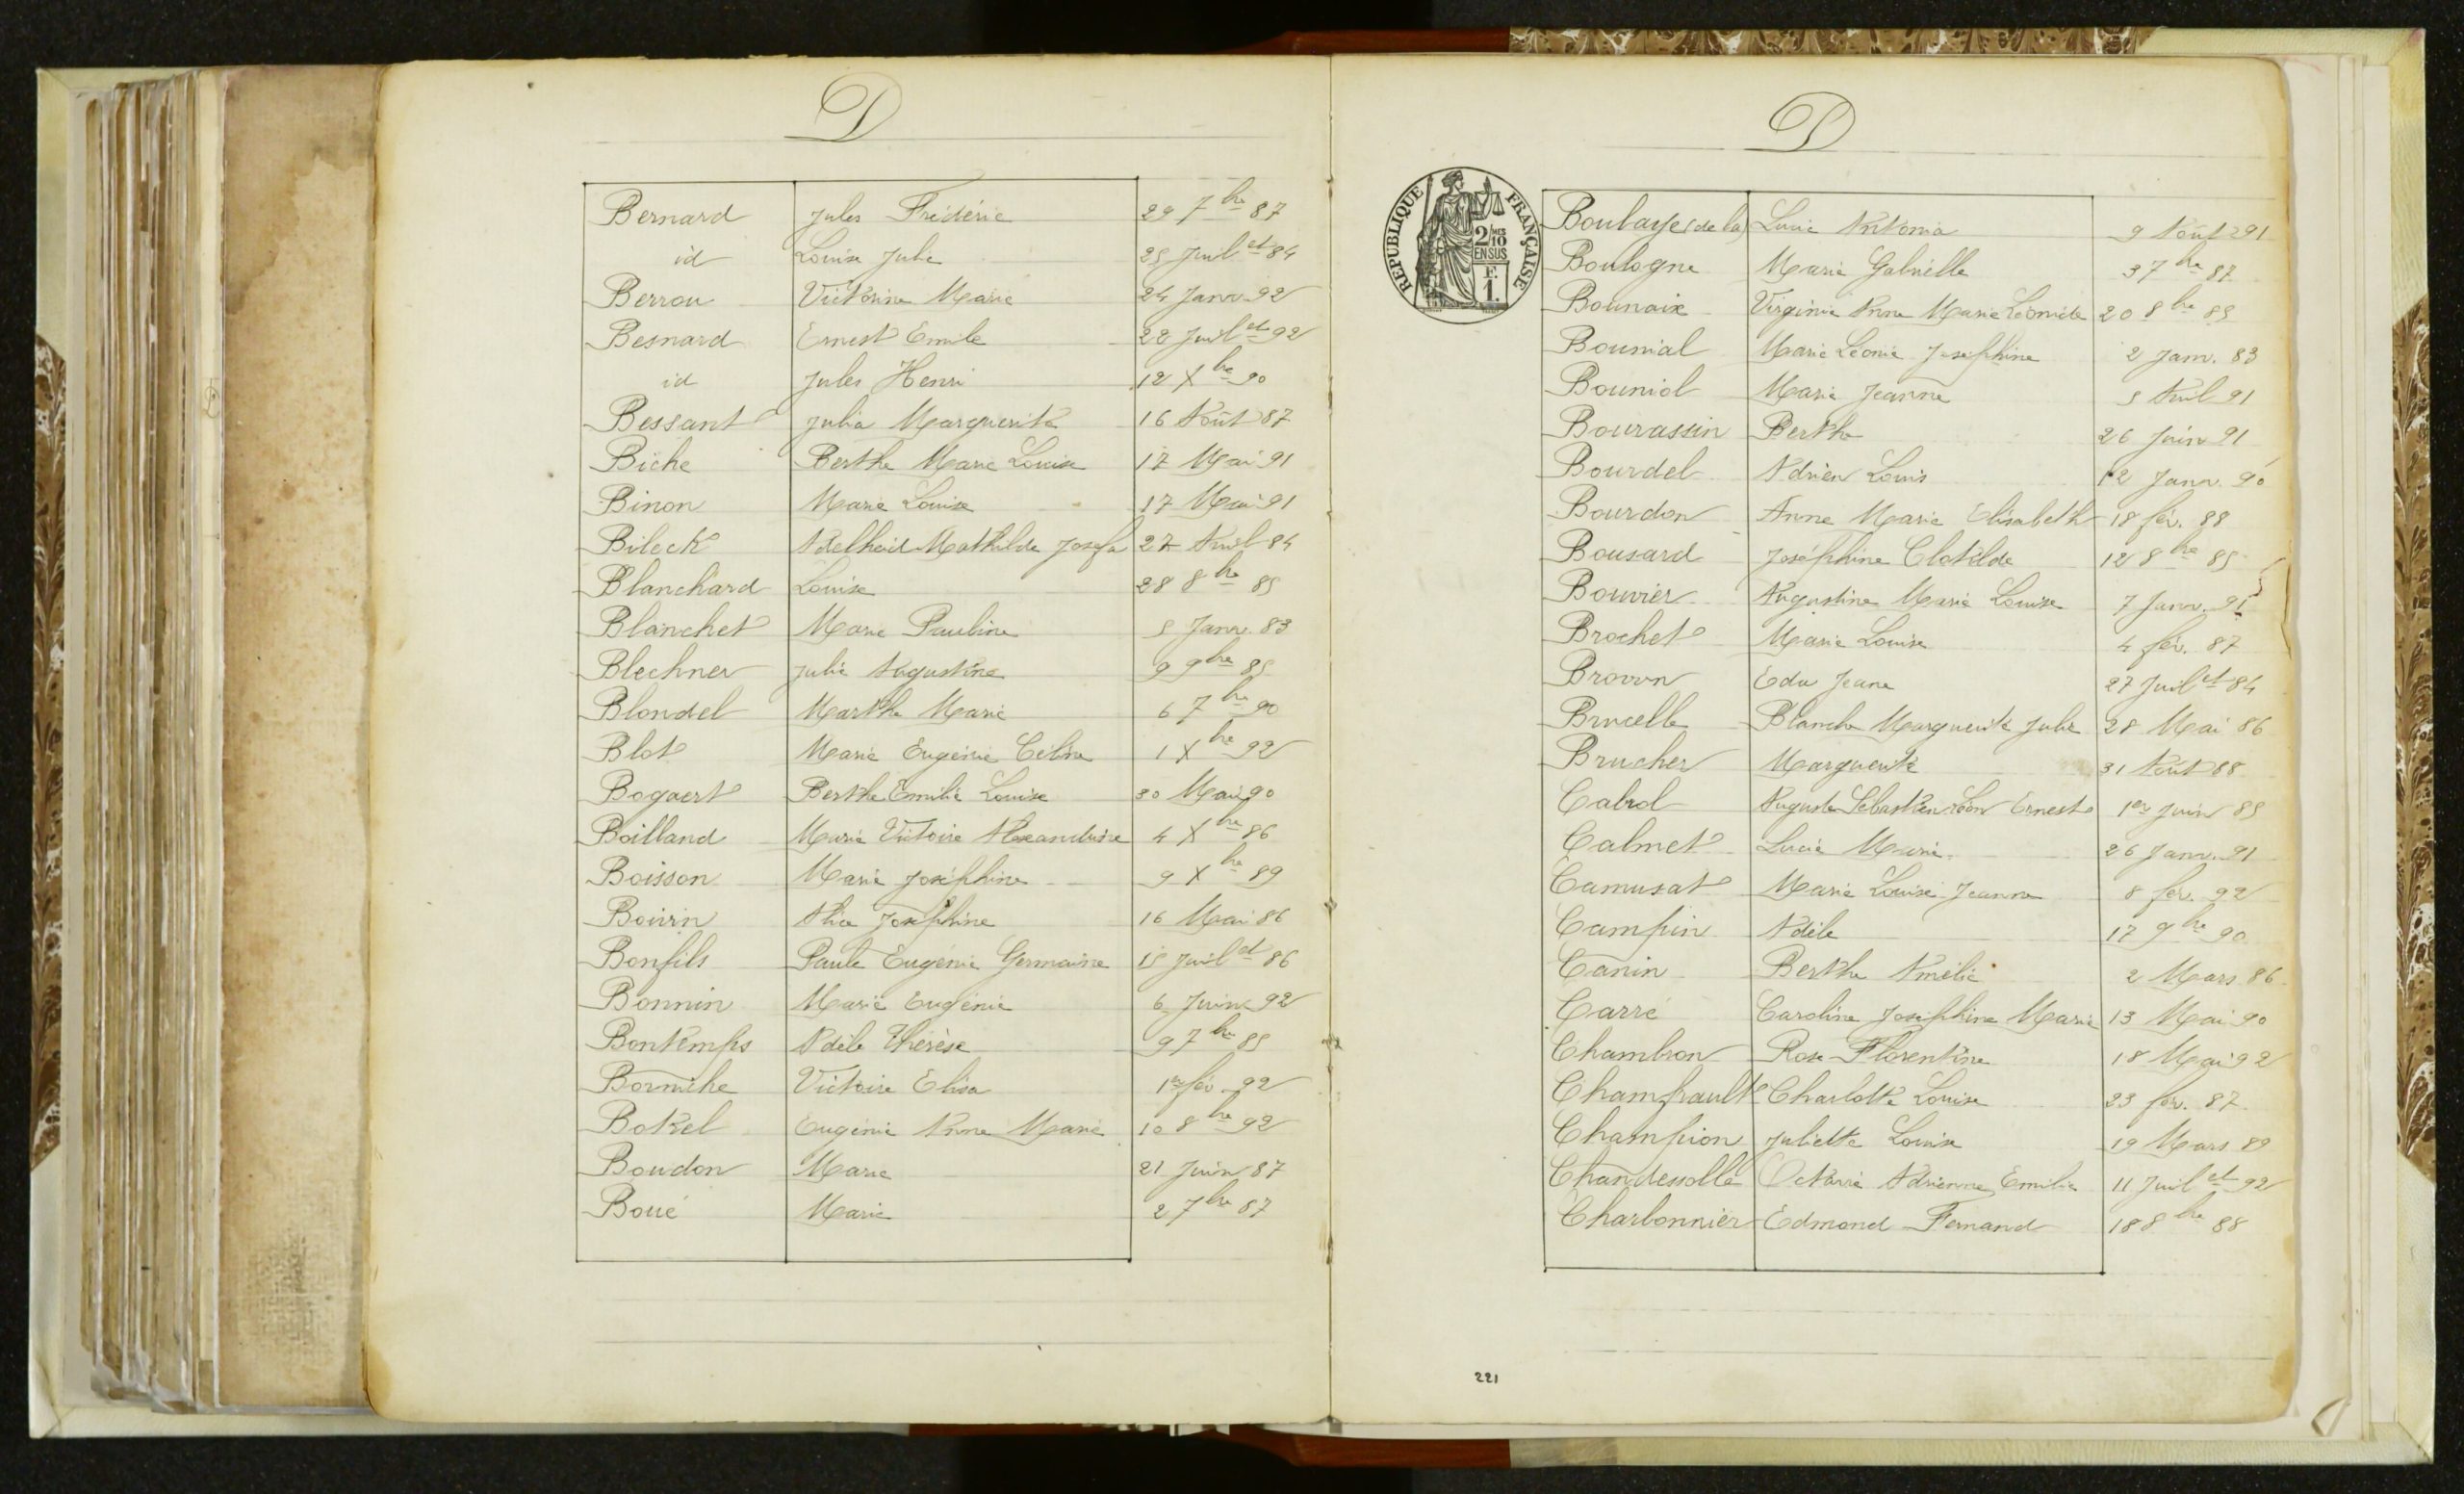 D
Bernard Jules Frédéric 29 7bre 87
id Louise Julie 25 Juillet 84
Berrou Victorine Marie 24 Janv. 92
Besnard Ernest Emile 28 Juillet 92
id Jules Henri 12 Xbre 90
Bessant Julia Marguerite 16 Août 87
Biche Berthe Marie Louise 17 Mai 91
Binon Marie Louise 17 Mai 91
Bileck Adelheid Mathilde Josefa 27 Avril 84
Blanchard Louise 28 8bre 85
Blanchet Marie Pauline 5 Janv. 83
Blechner Julie Augustine 9 9bre 85
Blondel Marthe Marie 6 7bre 90
Blot Marie Eugénie Celina 1 Xbre 92
Bogaert Berthe Emilie Louise 30 Mai 90
Boilland Marie Victoire Alexandrine 4 Xbre 86
Boisson Marie Joséphine 9 Xbre 89
Boivin Alice Joséphine 16 Mai 86
Bonfils Paule Eugénie Germaine 15 Juillet 86
Bonnin Marie Eugénie 6 Juin 92
Bontemps Adèle Thérèse 9 7bre 85
Borniche Victoire Elisa 1er fév. 92
Botrel Eugénie Anne Marie 10 8bre 92
Boudon Marie 21 Juin 87
Boué Marie 2 7bre 87
D
RÉPUBLIQUE FRANÇAISE
2/10 MES
EN SUS
F.
1.
Boulaye (de la) Lucie Antonia 9 Août 91
Boulogne Marie Gabrielle 3 7bre 87
Bounaix Virginie Anne Marie Léonide 20 8bre 85
Bounial Marie Léonie Joséphine 2 Janv. 83
Bouniol Marie Jeanne 5 Avril 91
Bourassin Berthe 26 Juin 91
Bourdel Adrien Louis 12 Janv. 90
Bourdon Anne Marie Elisabeth 18 fév. 88
Bousard Joséphine Clotilde 12 8bre 85
Bouvier Augustine Marie Louise 7 Janv. 91
Brochet Marie Louise 4 fév. 87
Brown Eda Jeane 27 Juillet 84
Brucelle Blanche Marguerite Julie 28 Mai 86
Brucher Marguerite 31 Août 88
Cabrol Auguste Sébastien Léon Ernest 1er Juin 85
Calmet Lucie Marie 26 Janv. 91
Camusat Marie Louise Jeanne 8 fév. 92
Campin Adèle 17 9bre 90
Canin Berthe Amélie 2 Mars 86
Carré Caroline Joséphine Marie 13 Mai 90
Chambron Rose Florentine 18 Mai 92
Champrault Charlotte Louise 23 fév. 87
Champion Juliette Louise 19 Mars 89
Chandessolle Octavie Adrienne Emilie 11 Juillet 92
Charbonnier Edmond Fernand 18 8bre 88
221